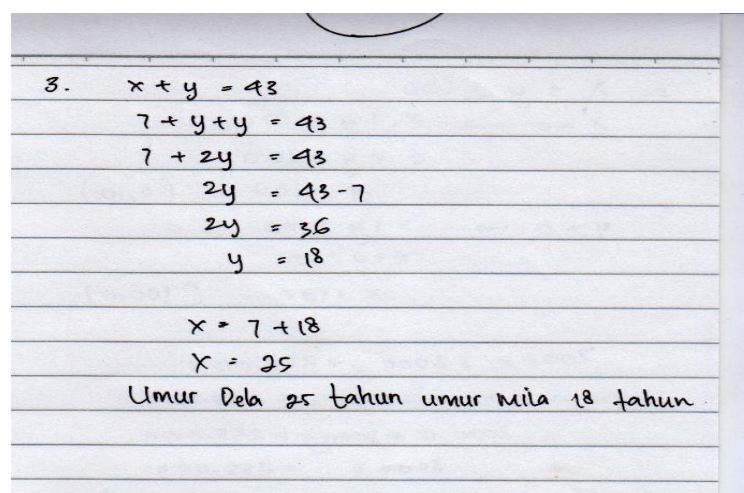 3. x + y = 43
7 + y + y = 43
7 + 2y = 43
2y = 43 - 7
2y = 36
y = 18
x = 7 + 18
x = 25
Umur Dela 25 tahun umur mila 18 tahun.